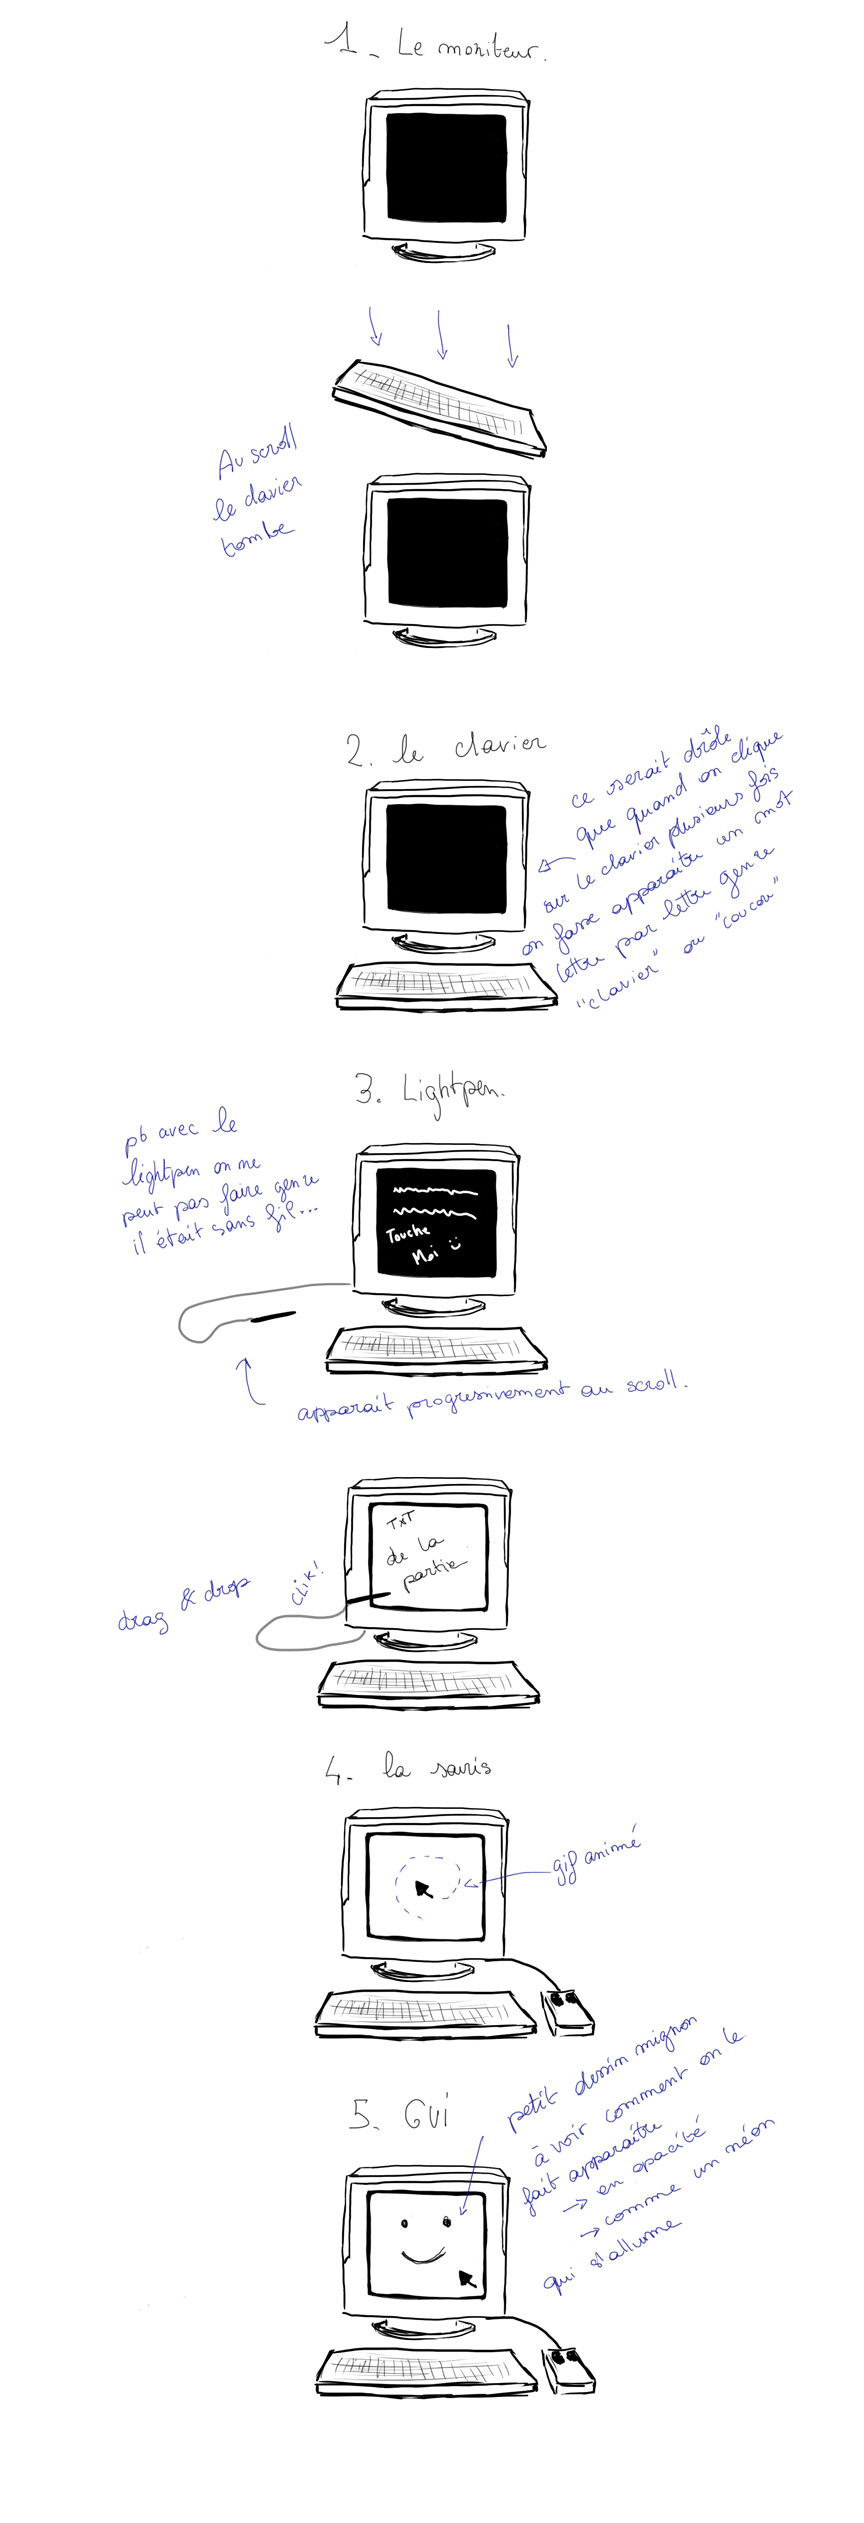 1_ Le moniteur.
Au scroll
le clavier
tombe
2. le clavier
ce serait drôle
que quand on clique
sur le clavier plusieurs fois
on fasse apparaître un mot
lettre par lettre genre
"clavier" ou "coucou"
3. Lightpen.
pb avec le
lightpen on ne
peut pas faire genre
il était sans fil...
Touche
Moi
apparait progressivement au scroll.
TxT
de la
partie
drag & drop
clik!
4. la souris
gif animé
5. GUI
petit dessin mignon
à voir comment on le
fait apparaître
→ en opacité
→ comme un néon
qui s'allume